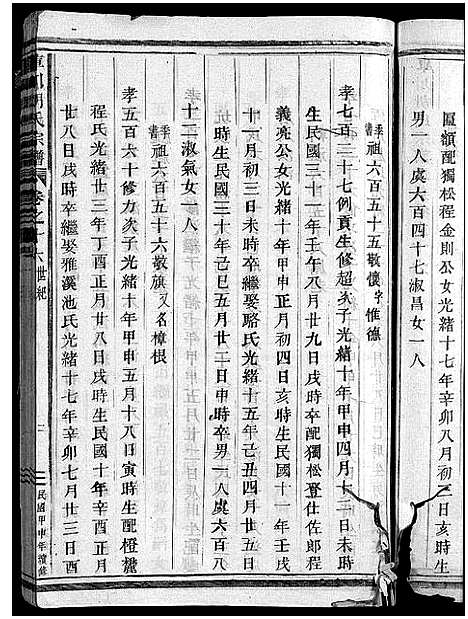 區額配獨松程金則公女光緒十七年辛卯八月初三日亥時生
男一人虞六百四十七淑昌女一人
季書祖六百五十五敬懷字惟德
孝七百三十七例貢生修超次子光緒十年甲申四月十二日未時
生民國三十一年壬午八月廿九日戌時卒配獨松登仕佐郎程
義亮公女光緒十年甲申正月初四日亥時生民國十一年壬戌
十一月初三日未時卒繼娶駱氏光緒十五年己丑四月十三日
時生民國三十年己巳五月廿二日申時卒男一人虞六百八
十二淑氣女一人
季書祖六百五十六敬旗又名樟根
孝五百六十修力次子光緒十年甲申五月十八日寅時生配橙麓
程氏光緒廿三年丁酉四月廿八日戌時生民國十年辛酉正月
廿八日戌時卒繼娶雅溪池氏光緒十七年辛卯七月廿三日酉
川胡氏宗譜 卷之 六世紀
民國甲申年續修